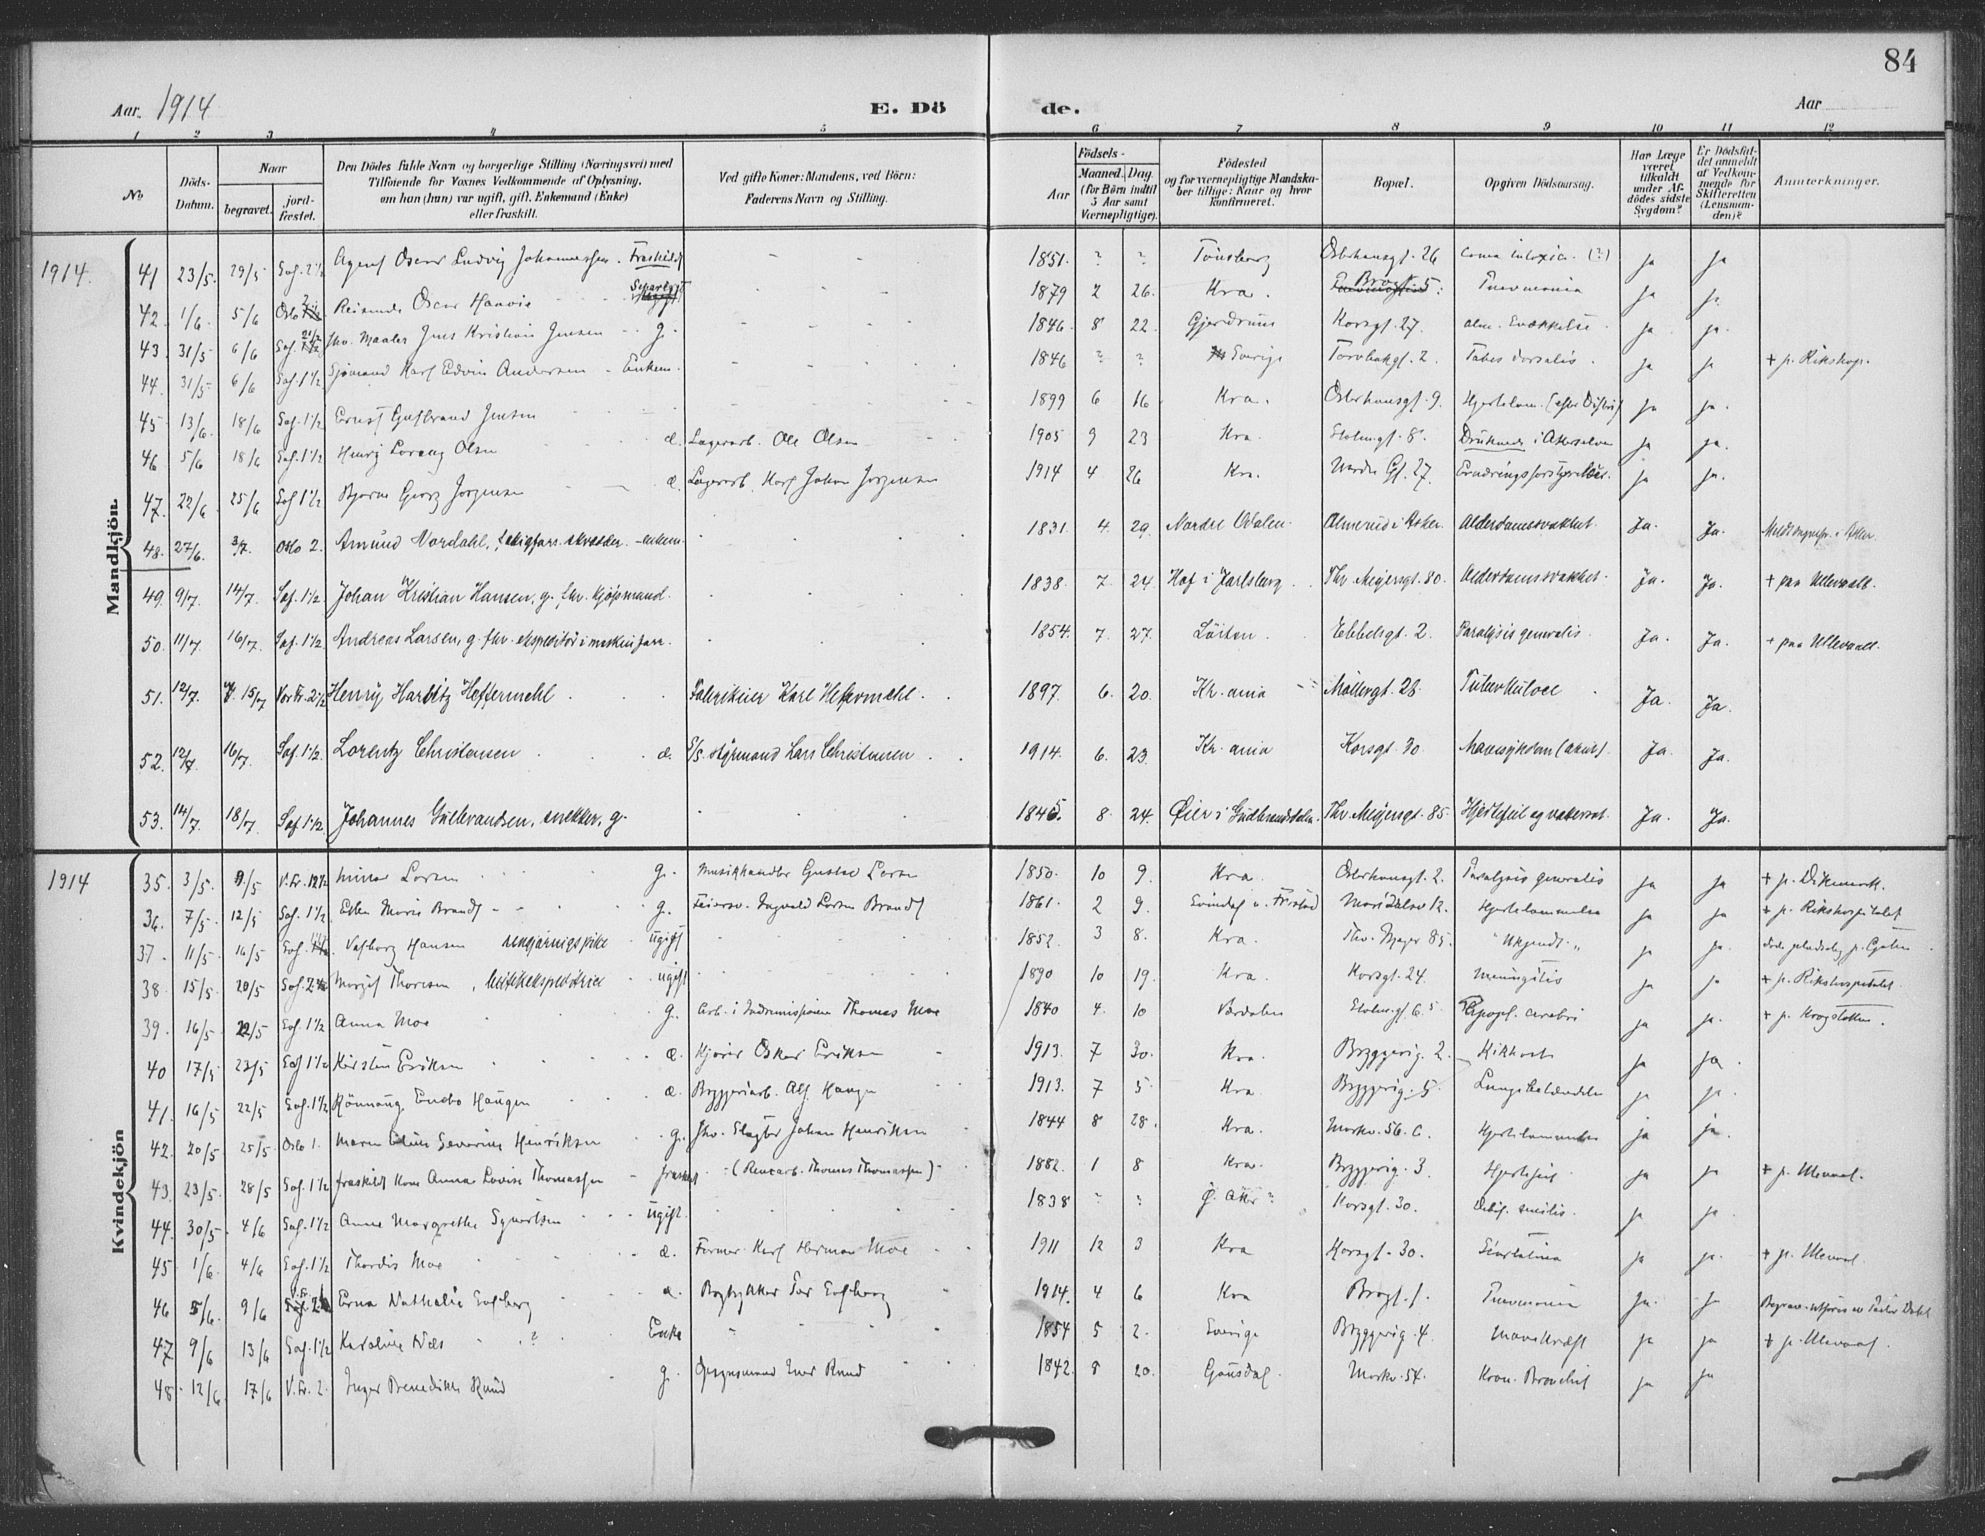 84
Aar. 1914 E. Dö de. Aar
1 2 3 4 5 6 7 8 9 10 11 12
No
Döds-Datum.
Naar
begravet.
jord-fæstet.
Den Dödes fulde Navn og borgerlige Stilling (Næringsvei) med
Tilføiende for Voxnes Vedkommende af Oplysning,
om han (hun) var ugift, gift, Enkemand (Enke)
eller fraskilt.
Ved gifte Koner: Mandens, ved Börn:
Faderens Navn og Stilling.
Födsels-
Aar
Maaned. Dag
(for Börn indtil
5 Aar samt
Værnepligtige).
Födested
og for værnepligtige Mandska-
ber tillige: Naar og hvor
konfirmeret.
Bopæl.
Opgiven Dödsaarsag.
Har Læge
været
tilkaldt
under Af-
dödes sidste
Sygdom?
Er Dödsfal-
det anmeldt
af Vedkom-
mende for
Skifteretten
(Lensman-
den)?
Anmerkninger.
Mandkjön
1914. 41 23/5. 29/5 Sof. 2 1/2 Agent Oscar Ludvig Johannessen. Fraskildt 1851. ? ? Tönsberg Osterhausgt. 26 Coma intoxica. (?) ja ja
42. 1/6. 5/6 Oslo Reisende Oscar Hanvis Separert 1879 2 26. Kra. Brogt. 5: Pneumonia ja ja.
43. 31/5 6/6 Sof. fhv. Maaler Jens Kristian Jensen g. 1846. 8 22. Gjerdrum Korsgt. 27. alm. Svækkelse ja ja.
44. 31/5 6/6 Sof. 1 1/2 Sjömand Karl Edvin Andersen - Enkem. 1846 ? ? Sverige Torvbakgt. 2. Tabes dorsalis. ja ja + p. Rikshosp.
45. 13/6. 18/6 Sof. 1 1/2 Ernst Gulbrand Jensen 1899 6 16 Kra. Osterhausgt. 9. ja ja.
46 5/6 18/6 Sof. 1 1/2 Henry Lorang Olsen æ. Lagerarb. Ole Olsen 1905 9 23 Kra. Holmgt. 8. Druknede i Akerselven ja ja.
47. 22/6 25/6 Sof 1 1/2 Bjarne Georg Jorgensen æ. Lagerarb. Karl Johan Jorgensen 1914 4 26 Kra. Nordre Gt. 27. Ernæringsforstyrrelser. ja ja.
48. 27/6. 3/7. Oslo 2. Amund Nordahl, skrædder. - enkem. 1831. 4. 29. Nordre Odalen. i Asker. Alderdomssvakhet. Ja. Ja. i Asker.
49. 9/7. 14/7. Sof. 1 1/2 Johan Kristian Hansen, g. fhv. kjöpmand. 1838. 7. 24. Hof i Jarlsberg. Thv. Meyersgt. 80. Alderdomssvakhet. Ja. Ja. + paa Ullevaal.
50. 11/7. 16/7. Sof. 1 1/2. Andreas Larsen, g. fhv. ekspeditör i maskinforr. 1854. 7. 27. Löiten. Ebbelsgt. 2. Paralysis generalis. Ja. Ja. + paa Ullevaal.
51. 12/7. 15/7 Vor Fr. 2 1/2 Henry Harbitz Heffermehl Fabrikeier Karl Heffermehl. 1897. 6. 20. Kr.ania Möllergt. 28. Tuberkulose Ja. Ja.
52. 12/7. 16/7. Sof. 1 1/2. Lorentz Christensen æ. S/S. styrmand Lars Christensen 1914. 6. 23. Kr.ania Korsgt. 30. Mavesykdom (akut). Ja. Ja.
53. 14/7. 18/7. Sof 1 1/2. Johannes Gullevandsen, snekker, g. 1845. 8. 24. Öier i Gudbrandsdalen. Thv. Meyersgt. 85. Hjertefeil og vatersot. Ja. Ja.
Kvindekjön
1914 35. 3/5. 9/5 V. Fr. 12 1/2 Larsen g. Musikhandler Gustav Larsen 1850. 10 9. Kra. Osterhausgt. 2. Paralysis generalis ja ja + p. Dikemark.
36. 7/5. 12/5 Sof. 1 1/2 Ellen Marie Brandt g. Feiersv. Ingvald Larsen Brandt 1861. 2 9. Svindal v. Fr.stad Maridalsv 12. Hjertelammelse ja ja + p. Rikshospitalet
37. 11/5 16/5 Sof. Valborg Hansen rengjörningspike ugift 1852. 3 8. Kra. Thv. Meyer 85. "Ukjendt." ja ja. döde pludselig p. Gaten
38. 15/5 20/5 Sof. Margit Thoresen, butikekspeditrice ugift 1890 10 19. Kra. Korsgt. 24. Meningitis ja ja + p. Rikshospitalet.
39. 16/5 22/5 Sof. 1 1/2 Anna Moe g. Arb. i Indremissionen Thomas Moe 1840 4. 10 Værdalen Holmsgt 6. 5 Apopl. cerebri ja ja. + p. Krogstötten.
40 17/5 23/5 Sof 1 1/2 Kirsten Eriksen æ. Kjörer Oskar Eriksen 1913. 7 30. Kra. Bryggerig. 2. Kikhoste ja ja
41. 16/5 22/5 Sof. 1 1/2 Rönnaug Enebo Haugen æ. Bryggeriarb. Alf Haugen 1913. 7 5 Kra. Bryggerig. 5. Lungebetændelse ja ja.
42. 20/5 25/5 Oslo 1. Maren Severine Henriksen g. fhv. Slagter Johan Henriksen 1844 8 28. Kra. Markv. 56. C. Hjertelammelse ja ja.
43. 23/5. 28/5 Sof. 1 1/2 fraskilt Kone Anna Lovise Thomassen - fraskilt - (Renearb. Thomas Thomassen) 1882. 1 8 Kra. Bryggerig. 3 Hjertefeil ja ja + p. Ullevaal.
44. 30/5 4/6 Sof. 1 1/2 Anne Margrethe Syvertsen ugift. 1838 ? ? Ö. Aker? Korsgt. 30. Debil. senilis. ja ja
45 1/6. 4/6 Sof. 1 1/2 Thordis Moe æ. Former Karl Herman Moe 1911 12 3 Kra Korsgt. 30. Scarlatina ja ja. + p. Ullevaal.
46 5/6. 9/6 V. Fr. Erna Nathalie Solberg æ. Bogtrykker Solberg 1914. 4 6 Kra Brogt. 1. Pneumonia ja. ja
47 9/6 13/6 Sof. 1 1/2 Karoline Næs ? Enke 1854 5 2. Sverige Bryggerig. 4 Mavekræft ja ja + p. Ullevaal.
48. 12/6. 17/6 V. Fr. 2. Inger Benedikte Ruud g. Opsynsmand Iver Ruud 1842. 8 20. Gausdal. Markv. 54. Kron. Bronchit ja ja